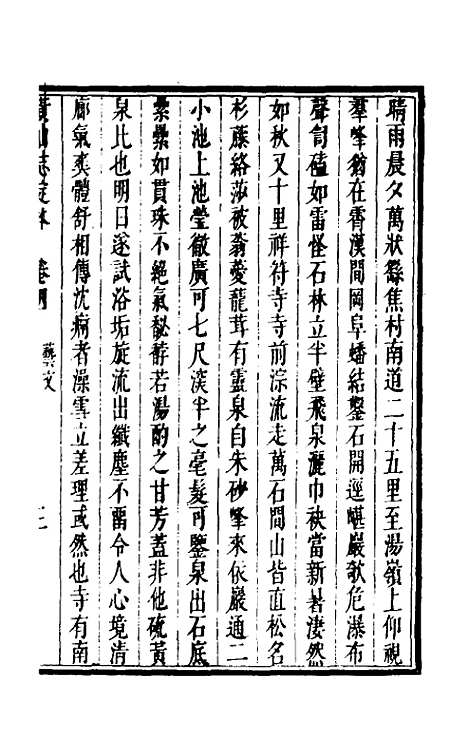 晴雨晨夕萬狀繇焦村南道二十五里至湯嶺上仰視
羣峰猶在霄漢間岡阜蟠結鑿石開逕嵁巖欹危瀑布
聲訇磕如雷怪石林立半壁飛泉灑巾袂當新暑淒然
如秋又十里祥符寺寺前淙流走萬石間山皆直松名
杉藤絡莎被蓊薆蘢茸有靈泉自朱砂峰來依巖通二
小池上池瑩徹廣可七尺深半之毫髮可鑒泉出石底
纍纍如貫珠不絕氣馝馞若湯酌之甘芳蓋非他硫黃
泉比也明日遂試浴垢旋流出纖塵不畱令人心境清
廓氣爽體舒相傳沈痾者澡雪立差理或然也寺有南
黃山志定本 卷 藝文